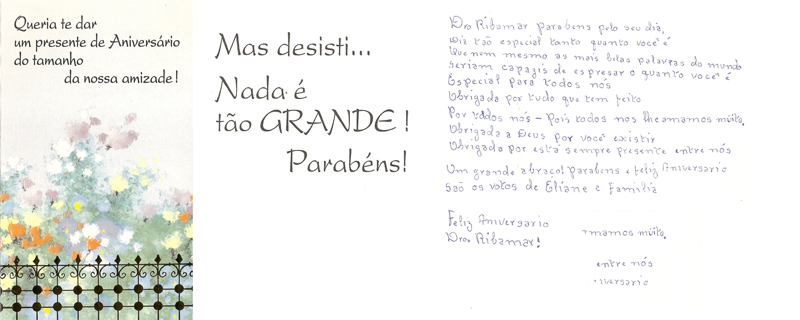 Queria te dar
um presente de Aniversário
do tamanho
da nossa amizade!
Mas desisti...
Nada é
tão GRANDE!
Parabéns!
Dro Ribamar parabens pelo seu dia,
Dis tão especial tanto quanto você é
Que nem mesmo as mais belas palavras do mundo
seriam capazis de espresar o quanto você é
Especial para todos nós
Obrigada por tudo que tem feito
Por todos nós - pois todos nos lhe amamos muito.
Obrigada a Deus por você existir
Obrigada por está sempre presente entre nós
Um grande abraço! parabens e feliz Aniversario
São os votos de Eliane e Familia
Feliz Aniversario
Dro. Ribamar!
mamos muito.
entre nós
niversario